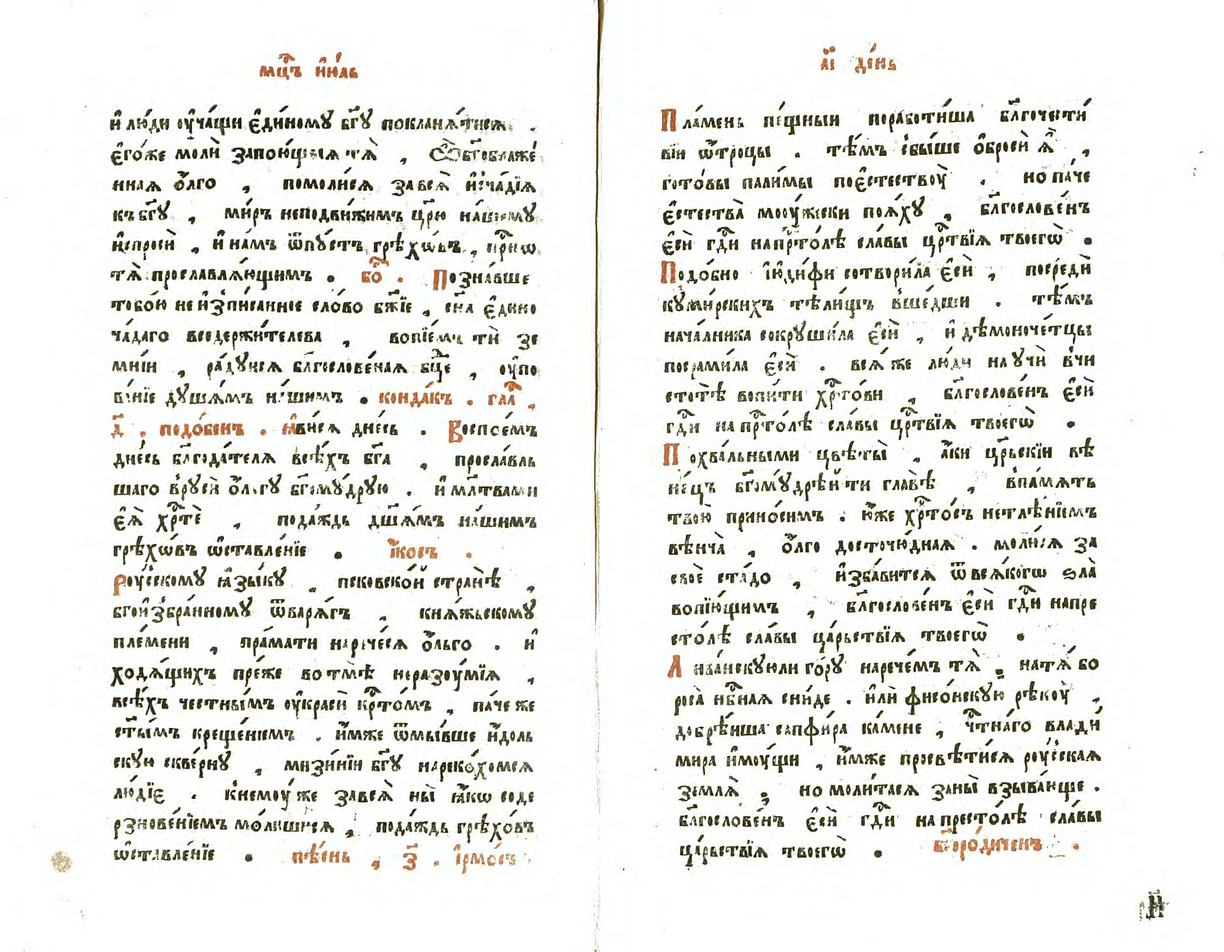 мц҃ъ и҆ю́ль
и҆ лю́ди оу҆ча́щи є҆ди́ному бг҃у покланѧ́тисѧ .
є҆го́же молѝ запою́щыѧ тѧ̀ , Ѽ бг҃облаже́
ннаѧ о҆́лго , помоли́сѧ завсѧ̀ и҆сча́дїѧ
къбг҃у , ми́ръ неподви́жимъ цр҃ю на́шему
и҆спросѝ , и҆на́мъ ѿпꙋ́стъ грѣхѡ́въ , при́снѡ
тѧ̀ прославлѧ́ющимъ . бо҃ . Позна́вше
тобо́ю неи҆зпи́санное сло́во бж҃їе , сн҃а є҆дино
ча́даго вседержи́телева , вопїе́мъ тѝ зе
мні́и , ра́дꙋисѧ блг҃ослове́наѧ бц҃е , оу҆по
ва́нїе дꙋша́мъ на́шимъ . конда́къ . гла́ ,
д҃ . подо́бенъ . ꙗ҆ви́сѧ дне́сь . Воспое́мъ
дне́сь блг҃ода́телѧ всѣ́хъ бг҃а , просла́вль
шаго врꙋсѝ о҆́лгꙋ бг҃омꙋ́дрꙋю . и҆ мл҃твами
є҆ѧ̀ хр҃тѐ , пода́ждь дш҃а́мъ на́шимъ
грѣхѡ́въ ѡ҆ставле́нїе . і҆́косъ .
Роу́сскомꙋ ꙗ҆зы́кꙋ , пско́вской странѣ̀ ,
бг҃ои҆збра́нномꙋ ѿварѧ́гъ , кнѧ́жьскомꙋ
пле́мени , пра́мати нарече́сѧ о҆́льго . и҆
ходѧ́щихъ пре́же во тмѣ̀ неразоу́мїѧ ,
всѣ́хъ честны́мъ оу҆красѝ кр҃то́мъ , па́че же
ст҃ы́мъ креще́нїемъ . и҆́мже ѿмы́вше и҆́доль
скꙋю скве́рнꙋ , мизи́нїи бг҃ꙋ нареко́хомсѧ
лю́дїє . кнемоу́же завсѧ̀ ны̀ ꙗ҆́кѡ соде
рзнове́нїемъ молѧ́щисѧ , пода́ждь грѣхо́въ
ѡ҆ставле́нїе . пѣ́снь , з҃ . і҆рмо́съ .
а҃і де́нь
Пла́мень пе́щныи порабо́тиша блг҃очести́
вїи ѻ҆́троцы . тѣ́мъ свы́ше ѻ҆бросѝ ꙗ҆̀ ,
гото́вы пали́мы поє҆стествоу̀ . но па́че
є҆стества̀ моу́жески поѧ́хꙋ , блг҃ослове́нъ
є҆сѝ гд҃и напр҃то́лѣ сла́вы цр҃твїѧ твоегѡ̀ .
Подо́бно і҆ю҆ди́фи сотвори́ла є҆сѝ , посредѝ
кꙋми́рскихъ тѣ́лищъ вше́дши . тѣ́мъ
нача́лника сокрꙋши́ла є҆сѝ , и҆ дѣмоноче́тцы
посрами́ла є҆сѝ . всѧ́ же лю́ди наꙋчѝ вчи
стотѣ̀ вопи́ти хр҃то́ви , блг҃ослове́нъ є҆сѝ
гд҃и на пр҃то́лѣ сла́вы цр҃твїѧ твоегѡ̀ .
Похва́льными цвѣ́ты , а҆́ки цр҃ьскїи вѣ
не́цъ бг҃омꙋ́драѧ ти главѣ̀ , впа́мѧть
твою̀ прино́симъ . ю҆́же хр҃то́съ нетлѣ́нїемъ
вѣнча̀ , о҆́лго досточю́днаѧ . моли́сѧ за
своѐ ста́до , и҆зба́витсѧ ѿ всѧ́когѡ ѕла̀
вопїю́щимъ , блг҃ослове́нъ є҆сѝ гд҃и напре
сто́лѣ сла́вы ца́рьствїѧ твоегѡ̀ .
Лива́нскꙋюли го́рꙋ нарече́мъ тѧ̀ , на тѧ́ бо
роса̀ нбⷭ҇наѧ сни́де . и҆лѝ фисо́нскꙋю рѣкоу̀ ,
добрѣ́иша сапфи́ра ка́мене , чⷭ҇тна́го влади́
мира и҆моу́щи , и҆́мже просвѣти́сѧ роу́сскаѧ
землѧ̀ ; но моли́тасѧ заны̀ взыва́юще .
блг҃ослове́нъ є҆сѝ гд҃и на престо́лѣ сла́вы
ца́рьствїѧ твоегѡ̀ . бг҃оро́диченъ .
н҃